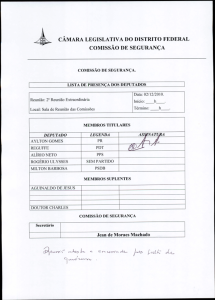 CÂMARA LEGISLATIVA DO DISTRITO FEDERAL
COMISSÃO DE SEGURANÇA
COMISSÃO DE SEGURANÇA.
LISTA DE PRESENÇA DOS DEPUTADOS
Reunião: 2ª Reunião Extraordinária
Data: 02/12/2010.
Início: h
Local: Sala de Reunião das Comissões
Término: h
MEMBROS TITULARES
DEPUTADO LEGENDA ASSINATURA
AYLTON GOMES PR
REGUFFE PDT
ALÍRIO NETO PPS
ROGÉRIO ULYSSES SEM PARTIDO
MILTON BARBOSA PSDB
MEMBROS SUPLENTES
AGUINALDO DE JESUS
DOUTOR CHARLES
COMISSÃO DE SEGURANÇA
Secretário
Jean de Moraes Machado